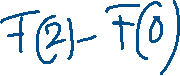 F(2) - F(0)